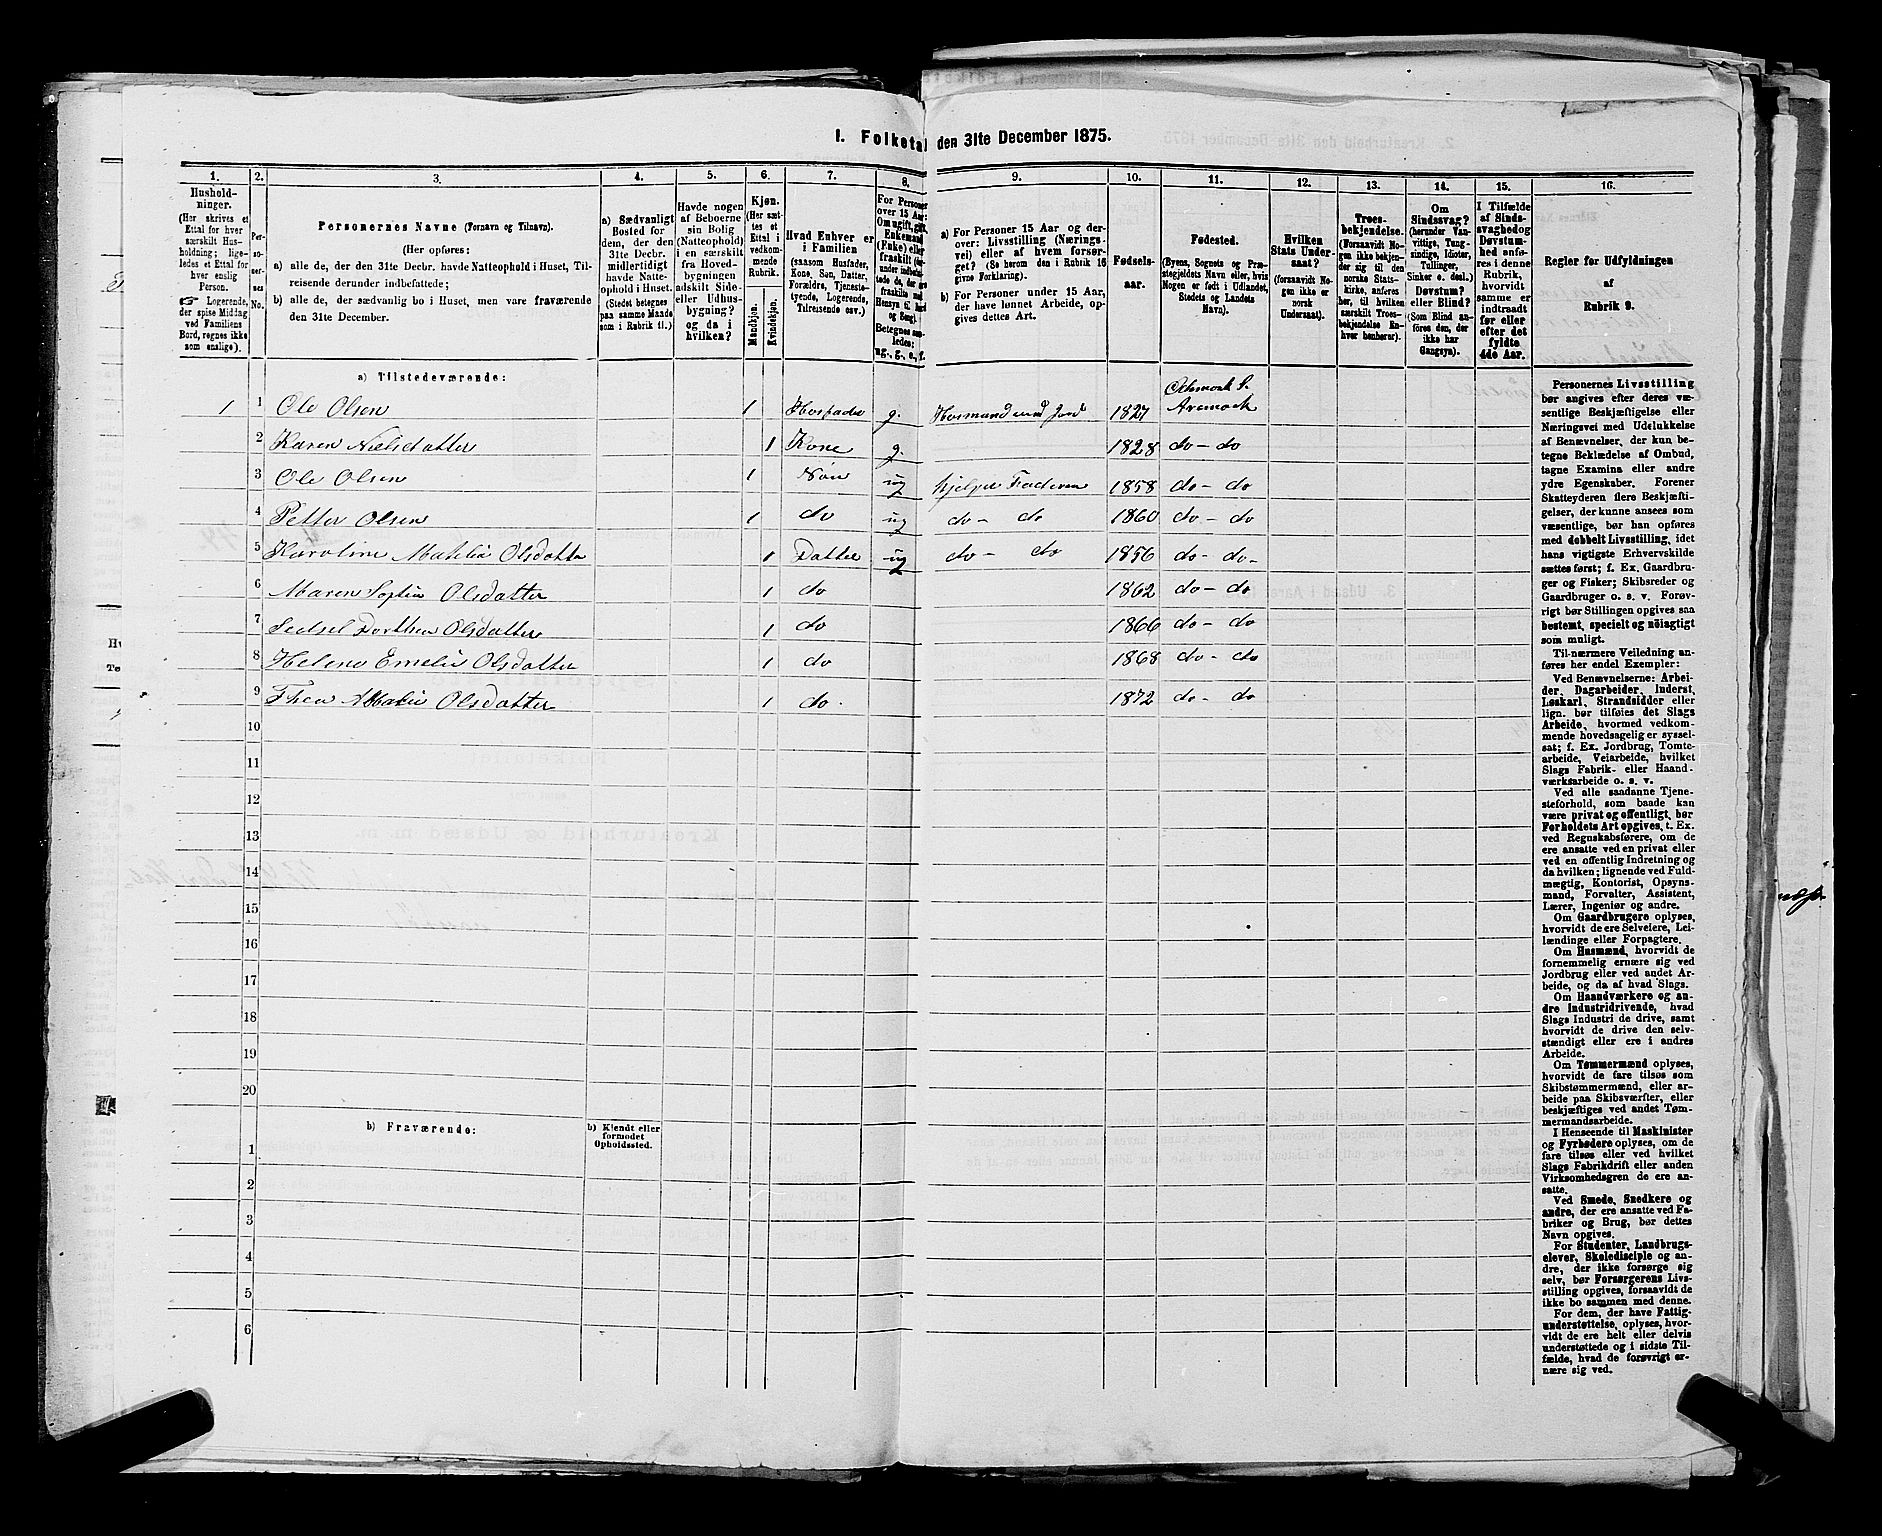 1. Folketal den 31te December 1875.
1. 2. 3. 4. 5. 6. 7. 8. 9. 10. 11. 12. 13. 14. 15. 16.
Hushold-
ninger.
(Her skrives et
Ettal for hver
særskilt Hus-
holdning; lige-
ledes et Ettal for
hver enslig
Person.
☞ Logerende,
der spise Middag
ved Familiens
Bord, regnes ikke
som enslige).
Per-
so-
ner-
nes
No.
Personernes Navne (Fornavn og Tilnavn).
(Her opføres:
a) alle de, der den 31te Decbr. havde Natteophold i Huset, Til-
reisende derunder indbefattede;
b) alle de, der sædvanlig bo i Huset, men vare fraværende
den 31te December.
a) Sædvanligt
Bosted for
dem, der den
31te Decbr.
midlertidigt
havde Natte-
ophold i Huset.
(Stedet betegnes
paa samme Maade
som i Rubrik 11.)
Havde nogen
af Beboerne
sin Bolig
(Natteophold)
i en særskilt
fra Hoved-
bygningen
adskilt Side-
eller Udhus-
bygning?
og da i
hvilken?
Kjøn.
(Her sæt-
tes et
Ettal i
vedkom-
mende
Rubrik.
Mandkjøn.
Kvindekjøn.
Hvad Enhver er
i Familien
(saasom Husfader,
Kone, Søn, Datter,
Forældre, Tjeneste-
tyende, Logerende,
Tilreisende osv.)
For Personer
over 15 Aar:
Om ugift, gift,
Enkemand
(Enke) eller
fraskilt
Betegnes saa-
ledes:
ug., g., e., f.
a) For Personer 15 Aar og der-
over: Livsstilling (Nærings-
vei) eller af hvem forsør-
get? (Se herom den i Rubrik 16
givne Forklaring).
b) For Personer under 15 Aar,
der have lønnet Arbeide, op-
gives dettes Art.
Fødsels-
aar.
Fødested.
(Byens, Sognets og Præ-
stegjeldets Navn eller, hvis
Nogen er født i Udlandet,
Stedets og Landets
Navn).
Hvilken
Stats Under-
saat?
(forsaavidt No-
gen ikke er
norsk
Undersaat).
Troes-
bekjendelse.
(Forsaavidt No-
gen ikke bekjen-
der sig til den
norske Stats-
kirke, anføres
her, til hvilken
særskilt Troes-
bekjendelse En-
hver henhører).
Om
Sindssvag?
(herunder Van-
vittige, Tung-
sindige, Idioter,
Tullinger,
Sinker o. desl.)
Døvstum?
eller Blind?
(Som Blind an-
føres den, der
ikke har
Gangsyn).
I Tilfælde
af Sinds-
svaghed og
Døvstum-
hed anfø-
res i denne
Rubrik,
hvorvidt
samme er
indtraadt
før eller
efter det
fyldte
4de Aar.
Regler for Udfyldningen
af
Rubrik 9.
a) Tilstedeværende:
1 1 Ole Olsen 1 Husfader g. Husmand med Jord 1827 Aremark
2 Karen Nielsdatter 1 Kone g. 1828 do - do
3 Ole Olsen 1 Søn ug hjelper Faderen 1858 do - do
4 Petter Olsen 1 do ug do - do 1860 do - do
5 Karoline Matilda Olsdatter 1 Datter ug do - do 1856 do - do -
6 Maren Sophie Olsdatter 1 do 1862 do - do
7 Dorthea Olsdatter 1 do 1866 do - do
8 Helena Emelie Olsdatter 1 do 1868 do - do
9 Thea Olsdatter 1 do. 1872 do - do
10
11
12
13
14
15
16
17
18
19
20
b) Fraværende:
b) Kjendt eller
formodet
Opholdssted.
1
2
3
4
5
6
Personernes Livsstilling
bør angives efter deres væ-
sentlige Beskjæftigelse eller
Næringsvei med Udelukkelse
af Benævnelser, der kun be-
tegne Beklædelse af Ombud,
tagne Examina eller andre
ydre Egenskaber. Forener
Skatteyderen flere Beskjæfti-
gelser, der kunne ansees som
væsentlige, bør han opføres
med dobbelt Livsstilling, idet
hans vigtigste Erhvervskilde
sættes først; f. Ex. Gaardbru-
ger og Fisker; Skibsreder og
Gaardbruger o. s. v. Forøv-
rigt bør Stillingen opgives saa
bestemt, specielt og nöiagtigt
som muligt.
Til nærmere Veiledning an-
føres her endel Exempler:
Ved Benævnelserne: Arbei-
der, Dagarbeider, Inderst,
Løskarl, Strandsidder eller
lign. bør tilføies det Slags
Arbeide, hvormed vedkom-
mende hovedsagelig er syssel-
sat; f. Ex. Jordbrug, Tomte-
arbeide, Veiarbeide, hvilket
Slags Fabrik- eller Haand-
værksarbeide o. s. v.
Ved alle saadanne Tjene-
steforhold, som baade kan
være privat og offentligt, bør
Forholdets Art opgives, t. Ex.
ved Regnskabsførere, om de
ere ansatte ved en privat eller
ved en offentlig Indretning og
da hvilken; lignende ved Fuld-
mægtig, Kontorist, Opsyns-
mand, Forvalter, Assistent,
Lærer, Ingeniør og andre.
Om Gaardbrugere oplyses,
hvorvidt de ere Selveiere, Lei-
lændinge eller Forpagtere.
Om Husmænd, hvorvidt de
fornemmelig ernære sig ved
Jordbrug eller ved andet Ar-
beide, og da af hvad Slags.
Om Haandværkere og an-
dre Industridrivende, hvad
Slags Industri de drive, samt
hvorvidt de drive den selv-
stændigt eller ere i andres
Arbeide.
Om Tømmermænd oplyses,
hvorvidt de fare tilsøs som
Skibstømmermænd, eller ar-
beide paa Skibsværfter, eller
beskjæftiges ved andet Tøm-
mermandsarbeide.
I Henseende til Maskinister
og Fyrbødere oplyses, om de
fare tilsøs eller ved hvilket
Slags Fabrikdrift eller anden
Virksomhedsgren de ere an-
satte.
Ved Smede, Snedkere og
andre, der ere ansatte ved Fa-
briker og Brug, bør dettes
Navn opgives.
For Studenter, Landbrugs-
elever, Skoledisciple og an-
dre, der ikke forsørge sig
selv, bør Forsørgerens Livs-
stilling opgives, forsaavidt de
ikke bo sammen med denne.
For dem, der have Fattig-
understøttelse, oplyses, hvor-
vidt de ere helt eller delvis
understøttede og i sidste Til-
fælde, hvad de forøvrigt er-
nære sig ved.